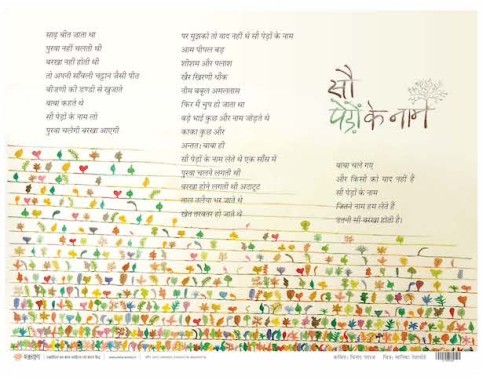 सौ
पेड़ों के नाम
साढ़ बीत जाता था
पुरवा नहीं चलती थी
बरखा नहीं होती थी
तो अपनी साँवली चट्टान जैसी पीठ
बीजणी की डण्डी से खुजाते
बाबा कहते थे
सौ पेड़ों के नाम लो
पुरवा चलेगी बरखा आएगी
पर मुझको तो याद नहीं थे सौ पेड़ों के नाम
आम पीपल बड़
शीशम और पलाश
खैर खिरणी धौंक
नीम बबूल अमलतास
फिर मैं चुप हो जाता था
बड़े भाई कुछ और नाम जोड़ते थे
काका कुछ और
अन्ततः बाबा ही
सौ पेड़ों के नाम लेते थे एक साँस में
पुरवा चलने लगती थी
बरखा होने लगती थी अटाटूट
ताल तलैया भर जाते थे
खेत तरबतर हो जाते थे
बाबा चले गए
और किसी को याद नहीं हैं
सौ पेड़ों के नाम
जितने नाम हम लेते हैं
उतनी सी बरखा होती है।